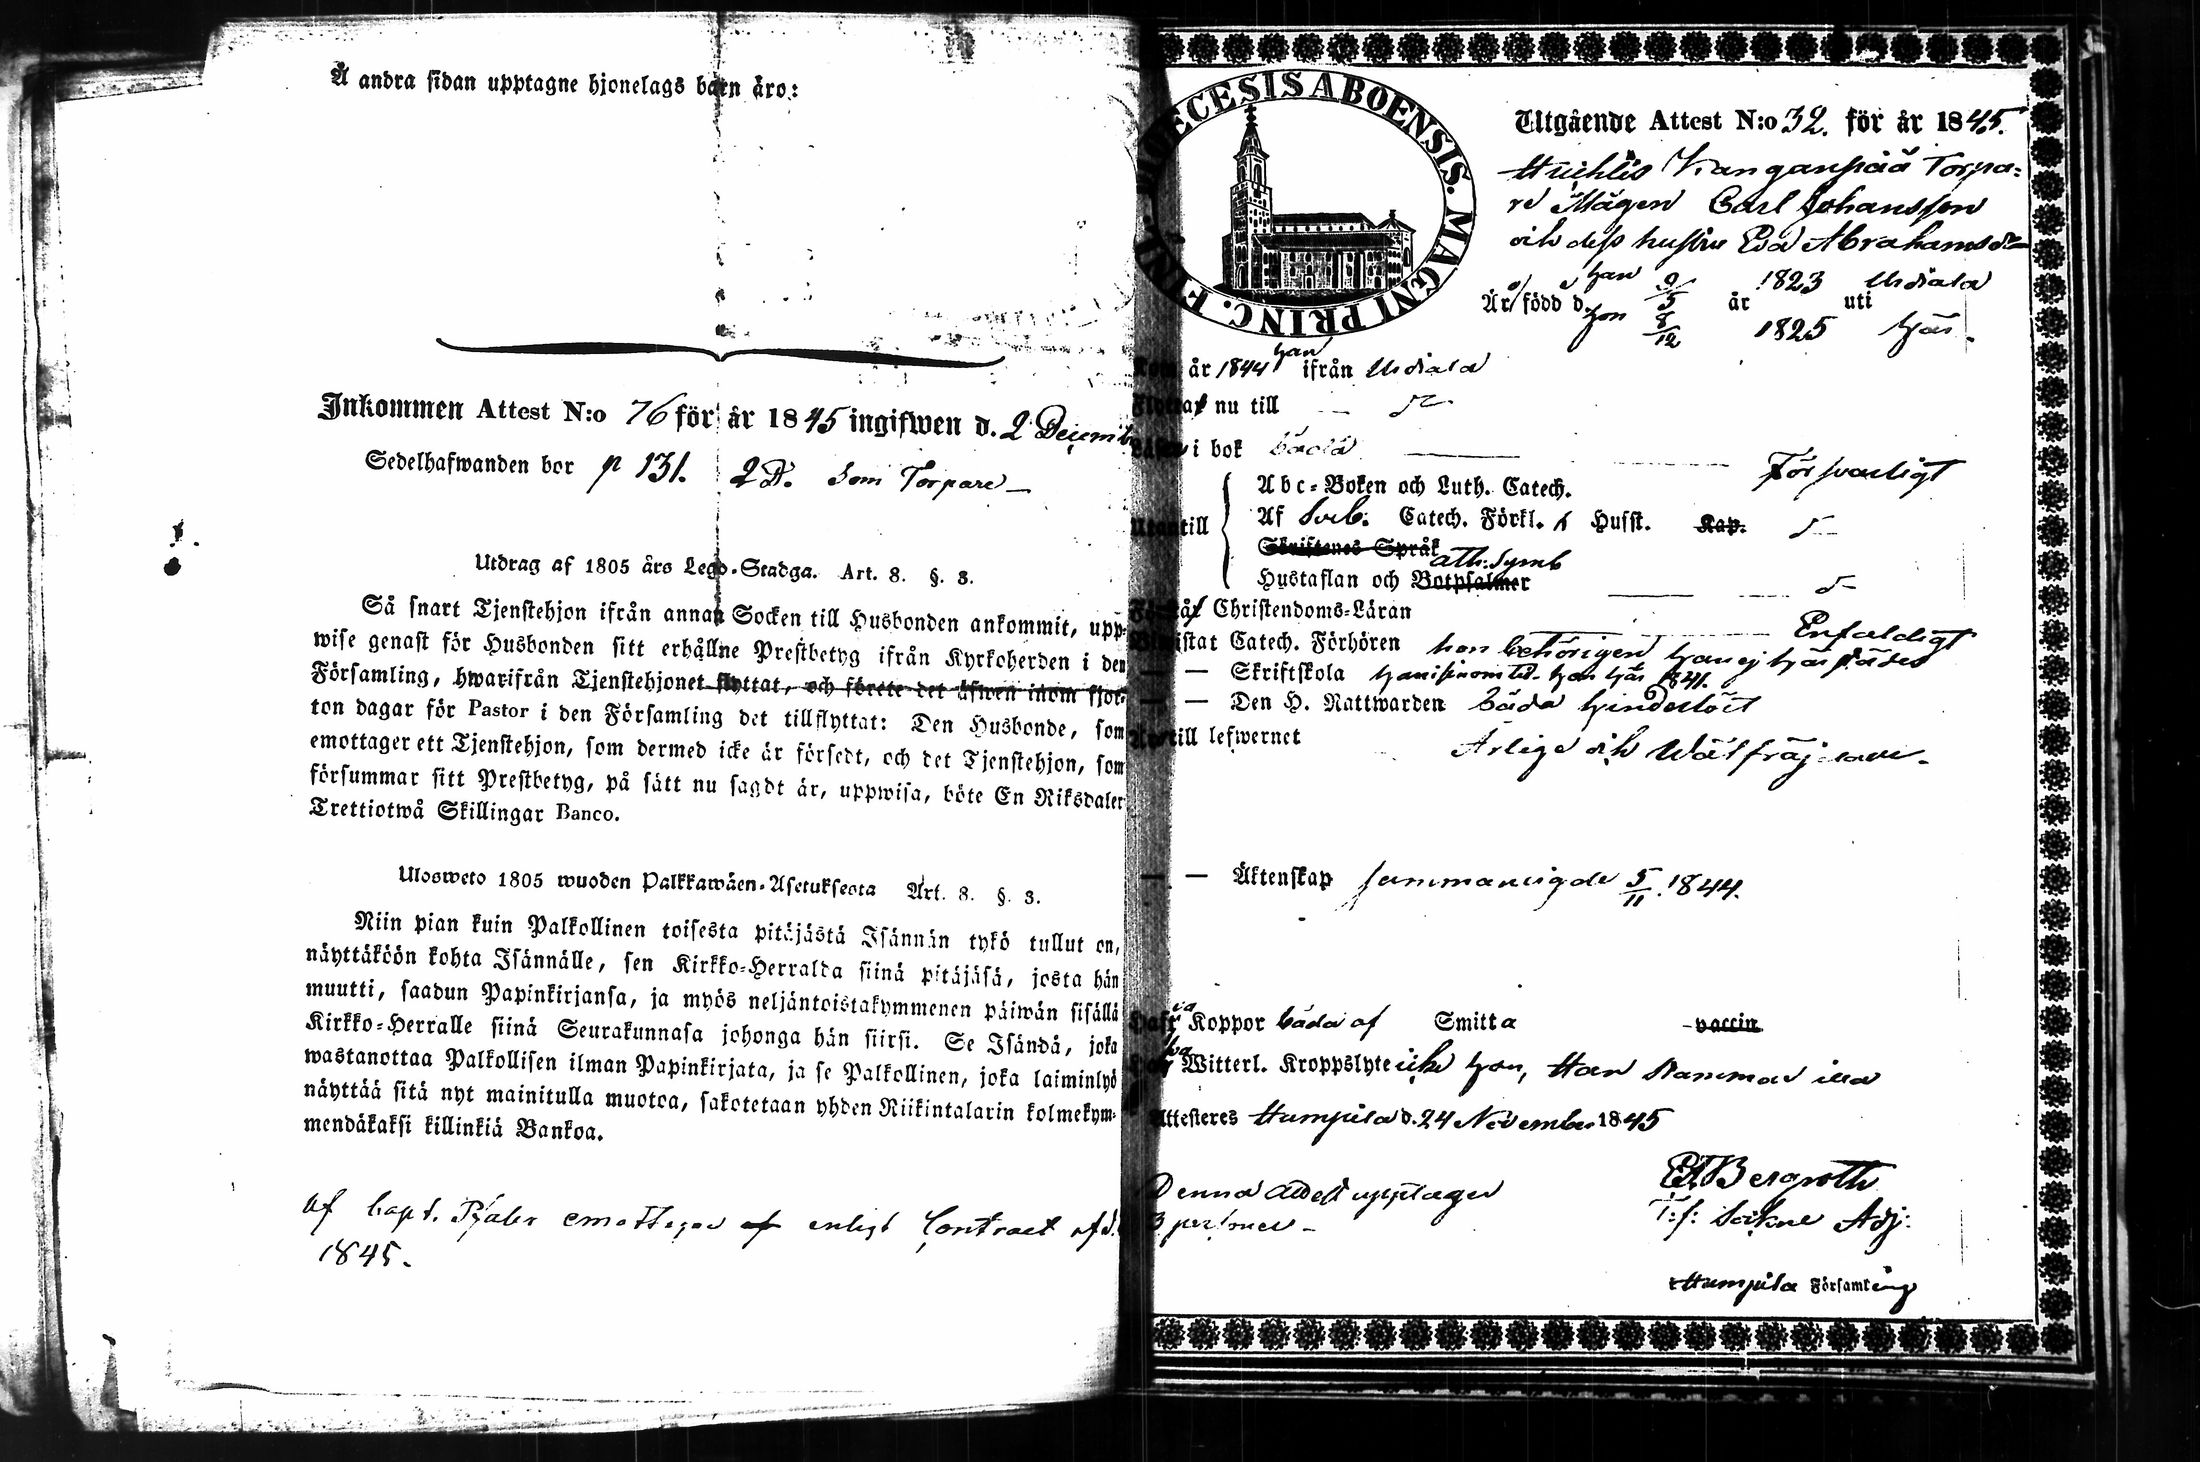 Å andra sidan upptagne hjonelags barn äro:
Inkommen Attest N:o 76 för år 1845 ingifwen d. 2 Decemb
Sedelhafwanden bor p 131. 2 D. som Torpare
Utdrag af 1805 års Lego-Stadga. Art. 8. §. 3.
Så snart Tjenstehjon ifrån annan Socken till Husbonden ankommit, upp-
wise genast för Husbonden sitt erhållne Prestbetyg ifrån Kyrkoherden i den
Församling, hwarifrån Tjenstehjonet flyttat, och förete det äfwen inom fjor-
ton dagar för Pastor i den Församling det tillflyttat: Den Husbonde, som
emottager ett Tjenstehjon, som dermed icke är försedt, och det Tjenstehjon, som
försummar sitt Prestbetyg, på sätt nu sagdt är, uppwisa, böte En Riksdaler
Trettiotwå Skillingar Banco.
Ulosweto 1805 wuoden Palkkawäen-Asetuksesta Art. 8. §. 3.
Niin pian kuin Palkollinen toisesta pitäjästä Isännän tykö tullut on,
näyttäköön kohta Isännälle, sen Kirkko-Herralda siinä pitäjäsä, josta hän
muutti, saadun Papinkirjansa, ja myös neljäntoistakymmenen päiwän sisällä
Kirkko-Herralle siinä Seurakunnasa johonga hän siirsi. Se Isändä, joka
wastanottaa Palkollisen ilman Papinkirjata, ja se Palkollinen, joka laiminlyö
näyttää sitä nyt mainitulla muotoa, sakotetaan yhden Riikintalarin kolmekym-
mendäkaksi killinkiä Bankoa.
af Capt. emottagen af enligt Contract af d.
1845.
DIOECESIS ABOENSIS. MAGNI PRINC. FINL.
Utgående Attest N:o 32. för år 1845.
Huhtis Kanganpää Torpa=
re Mågen Carl Johansson
och dess hustru Eva Abrahamsdr
Är född d. han 9/5 år 1823 uti Urdiala
hon 8/12 1825 här.
Kom år 1844 han ifrån Urdiala
Flyttar nu till
Läser i bok båda Försvarligt
Utantill
Abc-Boken och Luth. Catech.
Af Sveb. Catech. Förkl. Husst. Kap.
Skriftenes Språk
Ath: Symb
Hustaflan och Botpsalmer
Förstår Christendoms-Läran Enfaldigt
Bewistat Catech. Förhören hon behörigen han ej här
— — Skriftskola hon här 1841.
— — Den H. Nattwarden båda hinderlöst
Är till lefwernet Ärlige och Wälfräjdade.
— — Äktenskap sammanvigde 5/11 1844.
Hafwa Koppor båda af Smitta vaccin
Witterl. Kroppslyte icke hon, Han stammar illa
Attesteres Humpila d. 24 November 1845
Denna attest upptager
3 personer
Bergroth
T:f: Sockne Adj:
Humpila Församling